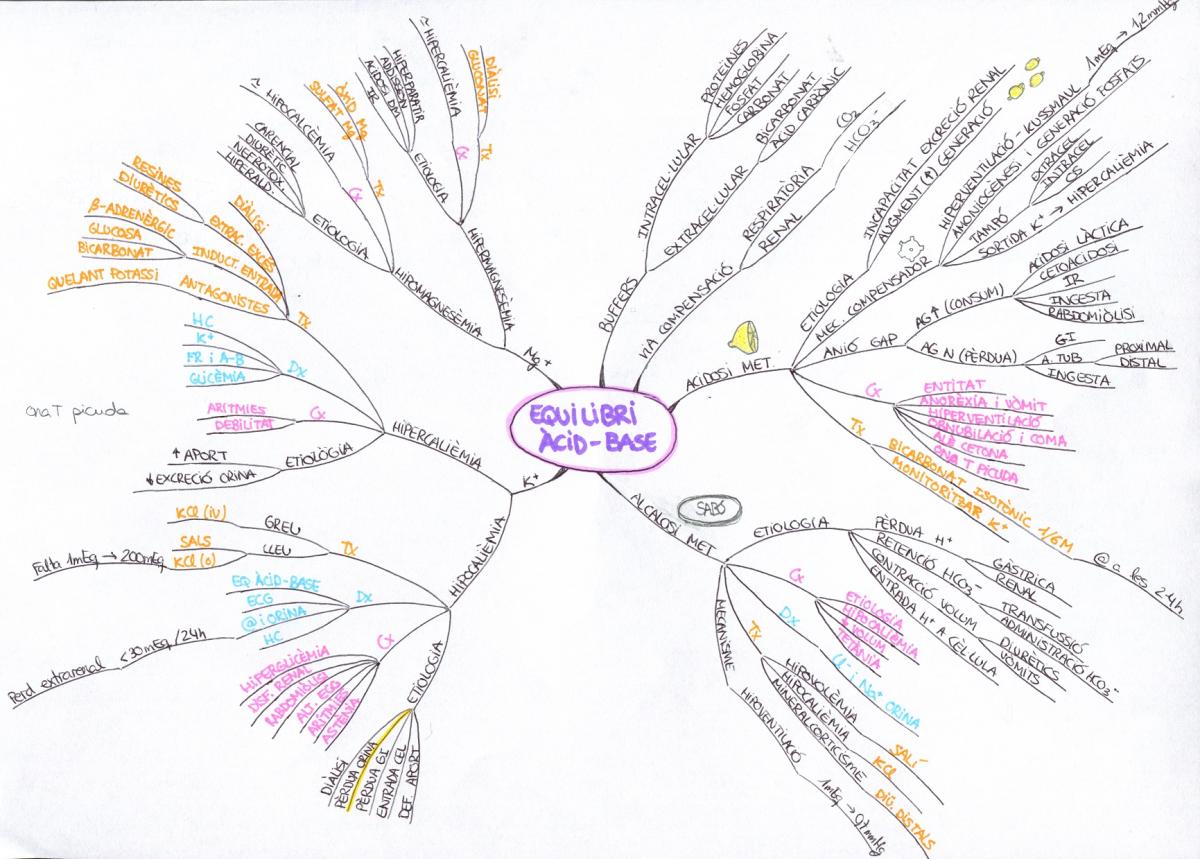 EQUILIBRI
ÀCID-BASE
BUFFERS
INTRACEL·LULAR
PROTEÏNES
HEMOGLOBINA
FOSFAT
CARBONAT
EXTRACEL·LULAR
BICARBONAT
ÀCID CARBÒNIC
VIA COMPENSACIÓ
RESPIRATÒRIA
CO2
RENAL
HCO3-
ACIDOSI MET.
ETIOLOGIA
INCAPACITAT EXCRECIÓ RENAL
AUGMENT (↑) GENERACIÓ
MEC. COMPENSADOR
HIPERVENTILACIÓ - KUSSMAUL
1mEq → 1,2 mmHg
AMONIOGÈNESI i GENERACIÓ FOSFATS
TAMPÓ
EXTRACEL
INTRACEL
CS
SORTIDA K+ → HIPERCALIÈMIA
ANIÓ GAP
AG↑ (CONSUM)
ACIDOSI LÀCTICA
CETOACIDOSI
IR
INGESTA
RABDOMIÒLISI
AG N (PÈRDUA)
GI
A. TUB
PROXIMAL
DISTAL
INGESTA
Cx
ENTITAT
ANORÈXIA i VÒMIT
HIPERVENTILACIÓ
OBNUBILACIÓ i COMA
ALÈ CETONA
ONA T PICUDA
Tx
BICARBONAT ISOTÒNIC 1/6M
MONITORITZAR K+
@ a les 24h
SABÓ
ALCALOSI MET
ETIOLOGIA
PÈRDUA H+
GÀSTRICA
RENAL
RETENCIÓ HCO3-
TRANSFUSSIÓ
ADMINISTRACIÓ HCO3-
CONTRACCIÓ VOLUM
DIÜRÈTICS
VÒMITS
ENTRADA H+ A CÈL·LULA
Cx
ETIOLOGIA
HIPOCALIÈMIA
↓ VOLUM
TETÀNIA
Dx
Cl- i Na+ ORINA
Tx
HIPOVOLÈMIA
SALÍ
HIPOCALIÈMIA
KCl
MINERALCORTICISME
DIÜ. DISTALS
MECANISME
HIPOVENTILACIÓ
1mEq → 0,7 mmHg
Mg+
HIPERMAGNESÈMIA
ETIOLOGIA
IR
ACIDOSI DM
ADDISSON
HIPERPARATIR
Cx
≈ HIPERCALIÈMIA
Tx
GLUCONAT
DIÀLISI
HIPOMAGNESÈMIA
ETIOLOGIA
CARENCIAL
DIURÈTIC
NEFROTOX.
HIPERALD.
Cx
≈ HIPOCALCÈMIA
Tx
ÒXID Mg
SULFAT Mg
K+
HIPERCALIÈMIA
Tx
DIÀLISI
EXTRAC. EXCÉS
RESINES
DIURÈTICS
INDUCT. ENTRADA
β-ADRENÈRGIC
GLUCOSA
BICARBONAT
ANTAGONISTES
QUELANT POTASSI
Dx
HC
K+
FR i A-B
GLICÈMIA
Cx
ARÍTMIES
DEBILITAT
Ona T picuda
ETIOLÒGIA
↑ APORT
↓ EXCRECIÓ ORINA
HIPOCALIEMIA
Tx
GREU
KCl (iv)
LLEU
SALS
KCl (o)
Falta 1mEq → 200mEq
Dx
EQ ÀCID-BASE
ECG
@ i ORINA
HC
Perd extrarenal <30mEq/24h
Cx
HIPERGLICÈMIA
DISF. RENAL
RABDOMIOLISI
ALT. ECG
ARÍTMIA
ASTÈNIA
ETIOLOGIA
DIÀLISI
PÈRDUA ORINA
PÈRDUA GI
ENTRADA CEL
DEF. APORT